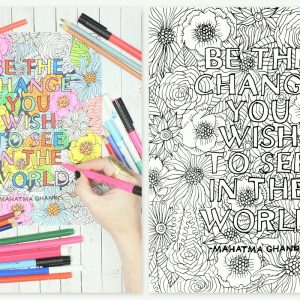 BE THE
CHANGE
YOU
WISH
TO SEE
IN THE
WORLD
-MAHATMA GHANDI
BE THE
CHANGE
YOU
WISH
TO SEE
IN THE
WORLD
-MAHATMA GHANDI